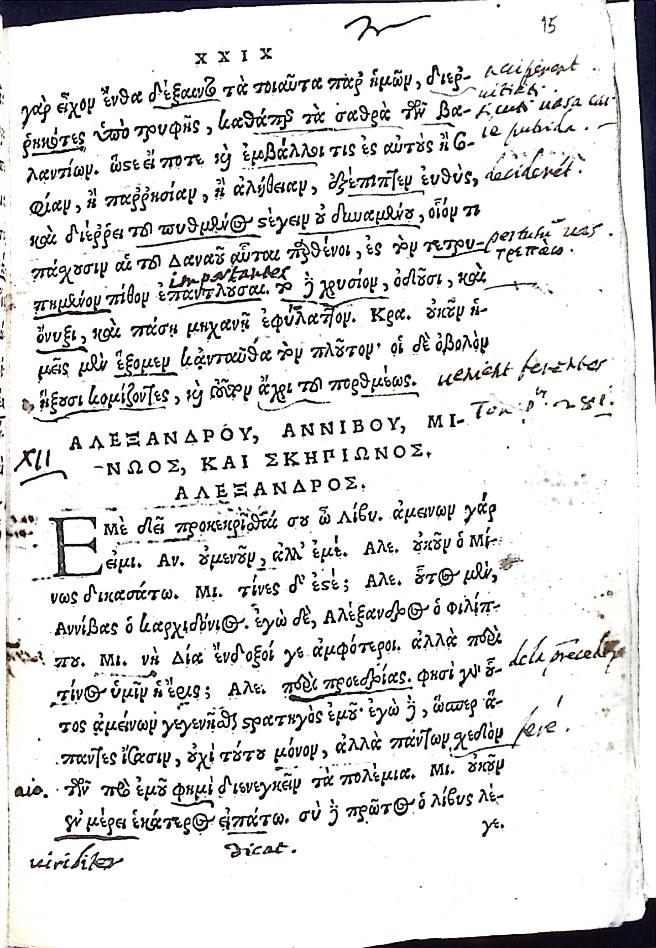 15
XXIX
γὰρ εἶχον ἔνθα δέξαιντο τὰ τοιαῦτα παρ' ἡμῶν, διερ-
ῥυηκότες ὑπὸ τρυφῆς, καθάπερ τὰ σαθρὰ τῶν βα-
λαντίων. ὥστε εἴ ποτε καὶ ἐμβάλλοι τις ἐς αὐτοὺς ἢ σο-
φίαν, ἢ παῤῥησίαν, ἢ ἀλήθειαν, ἐξέπιπτεν εὐθὺς, decideret.
καὶ διέῤῥει τοῦ πυθμένος στέγειν οὐ δυναμένου, οἷόν τι
πάσχουσιν αἱ τοῦ Δαναοῦ αὗται παρθένοι, ἐς τὸν τετρυ-
importantes
πημένον πίθον ἐπαντλοῦσαι. τὸ δὲ χρυσίον, ὀδοῦσι, καὶ
ὄνυξι, καὶ πάσῃ μηχανῇ ἐφύλαττον. Κρα. οὐκοῦν ἡ-
μεῖς μὲν ἕξομεν κἀνταῦθα τὸν πλοῦτον· οἱ δὲ ὀβολὸν
ἥξουσι κομίζοντες, καὶ τοῦτον ἄχρι τοῦ πορθμέως. venient ferentes
XII ΑΛΕΞΑΝΔΡΟΥ, ΑΝΝΙΒΟΥ, ΜΙ-
ΝΩΟΣ, ΚΑΙ ΣΚΗΠΙΩΝΟΣ.
ΑΛΕΞΑΝΔΡΟΣ.
ΕΜὲ δεῖ προκεκρίσθαί σου ὦ Λίβυ. ἀμείνων γάρ
εἰμι. Αν. οὐμενοῦν, ἀλλ' ἐμέ. Αλε. οὐκοῦν ὁ Μί-
νως δικασάτω. Μι. τίνες δ' ἐστέ; Αλε. οὗτος μὲν,
Αννίβας ὁ καρχηδόνιος. ἐγὼ δὲ, Αλέξανδρος ὁ φιλίπ-
που. Μι. νὴ Δία ἔνδοξοί γε ἀμφότεροι. ἀλλὰ περὶ
τίνος ὑμῖν ἡ ἔρις; Αλε. περὶ προεδρίας. φησὶ γὰρ οὗ-
τος ἀμείνων γεγενῆσθαι στρατηγὸς ἐμοῦ· ἐγὼ δὲ, ὥσπερ ἅ-
παντες ἴσασιν, οὐχὶ τούτου μόνον, ἀλλὰ πάντων σχεδὸν ferè.
aio. τῶν πρὸ ἐμοῦ φημὶ διενεγκεῖν τὰ πολέμια. Μι. οὐκοῦν
ἐν μέρει ἑκάτερος εἰπάτω. σὺ δὲ πρῶτος ὁ λίβυς λέ-
γε.
viriliter dicat.